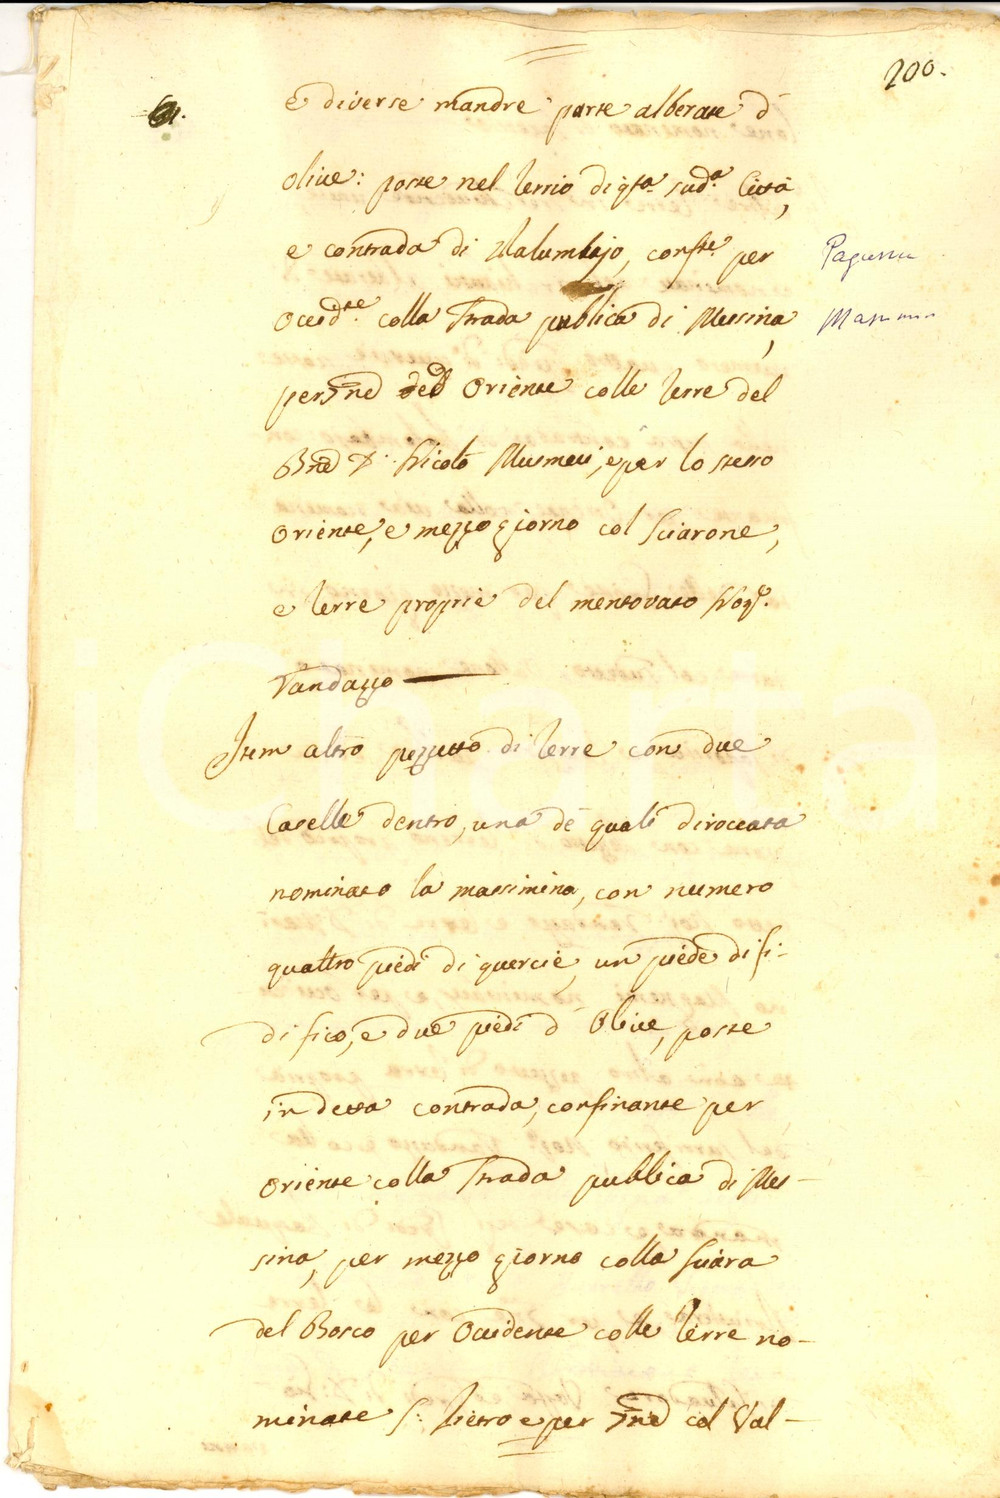 200.
e diverse mandre parte alberate d'
olive: poste nel Terrio di qta. sudª. Città,
e contrada di Malumbajo, confte. per
Occidte. colla Strada publica di Messina,
per ed Oriente colle Terre del
Bne D. Nicolò Musmeci, e per lo stesso
Oriente, e mezzo giorno col Sciarone,
e Terre proprie del mentovato
Vandazzo
Item altro pezzetto di Terre con due
Caselle dentro, una de quali diroccata
nominato la massimina, con numero
quattro piedi di quercie, un piede di fi-
di fico, e due piedi d' Olive, poste
in detta contrada, confinante per
Oriente colla Strada publica di Mes-
sina, per mezzo giorno colla Sciara
del Bosco per Occidente colle Terre no-
minate S: Pietro e per col Val-